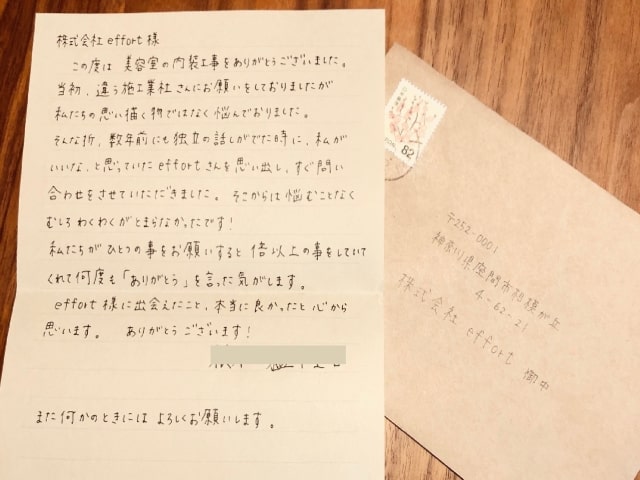 株式会社effort様
この度は 美容室の内装工事をありがとうございました。
当初、違う施工業社さんにお願いをしておりましたが
私たちの思い描く物ではなく悩んでおりました。
そんな折、数年前にも独立の話しがでた時に、私が
いいな、と思っていたeffortさんを思い出し、すぐ問い
合わせをさせていただきました。そこからは悩むことなく
むしろわくわくがとまらなかったです!
私たちがひとつの事をお願いすると 倍以上の事をしていて
くれて何度も「ありがとう」を言った気がします。
effort様に出会えたこと、本当に良かったと心から
思います。 ありがとうございます!
また何かのときには よろしくお願いします。
82
〒252-0001
神奈川県座間市相模が丘
4-62-21
株式会社 effort 御中